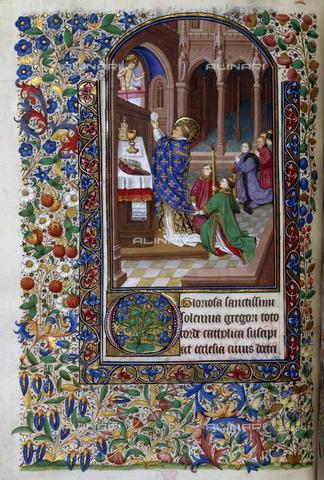 ALINARI
ALINARI
ALINARI
Gloriosa sanctissimi
solennia gregori toto
corde catholica suscipi
at ecclesia cuius doctri